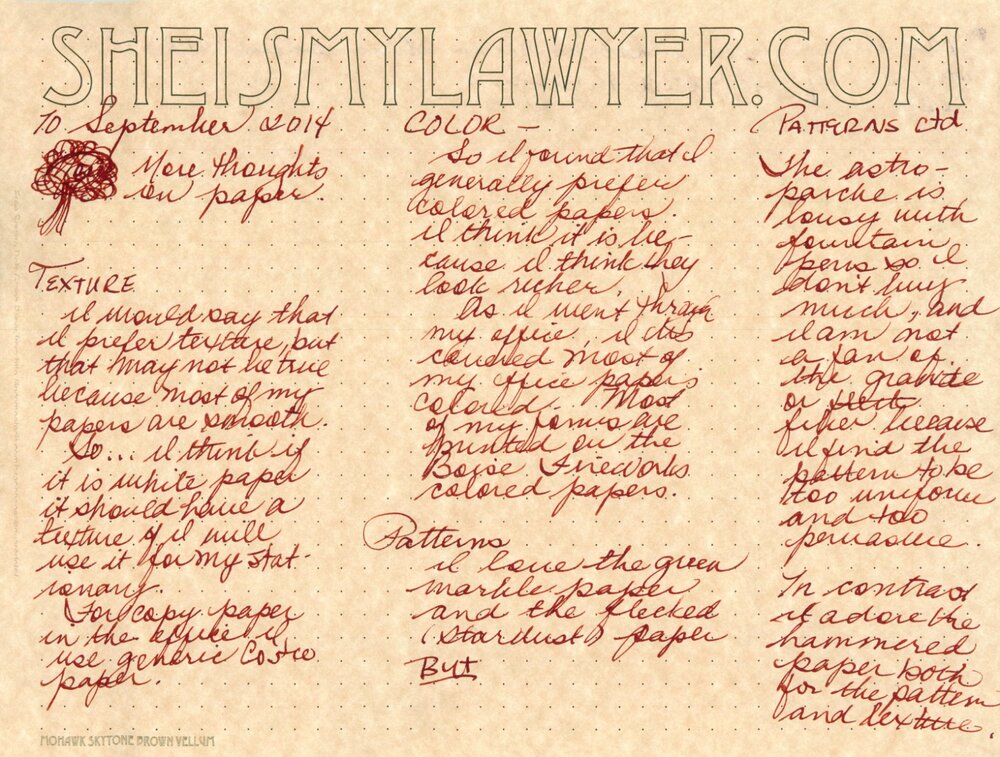 SHEISMYLAWYER.COM
10 September 2014
More thoughts
on paper.
TEXTURE
I would say that
I prefer texture, but
that may not be true
because most of my
papers are smooth.
So... I think if
it is white paper
it should have a
texture if I will
use it for my stat-
ionary.
For copy paper
in the office I
use generic Costco
paper.
COLOR –
So I found that I
generally prefer
colored papers.
I think it is be-
cause I think they
look richer.
As I went through
my office, I
covered most of
my office papers
colored. Most
of my forms are
printed on the
Boise Fireworks
colored papers.
Patterns
I love the green
marble paper
and the flecked
(Stardust) paper
But
PATTERNS ctd
The astro-
parche is
lousy with
fountain
pens so I
don't buy
much, and
I am not
a fan of
the granite
or
fiber because
I find the
pattern to be
too uniform
and too
pervasive.
In contrast
I adore the
hammered
paper both
for the pattern
and texture.
MOHAWK SKYTONE BROWN VELLUM